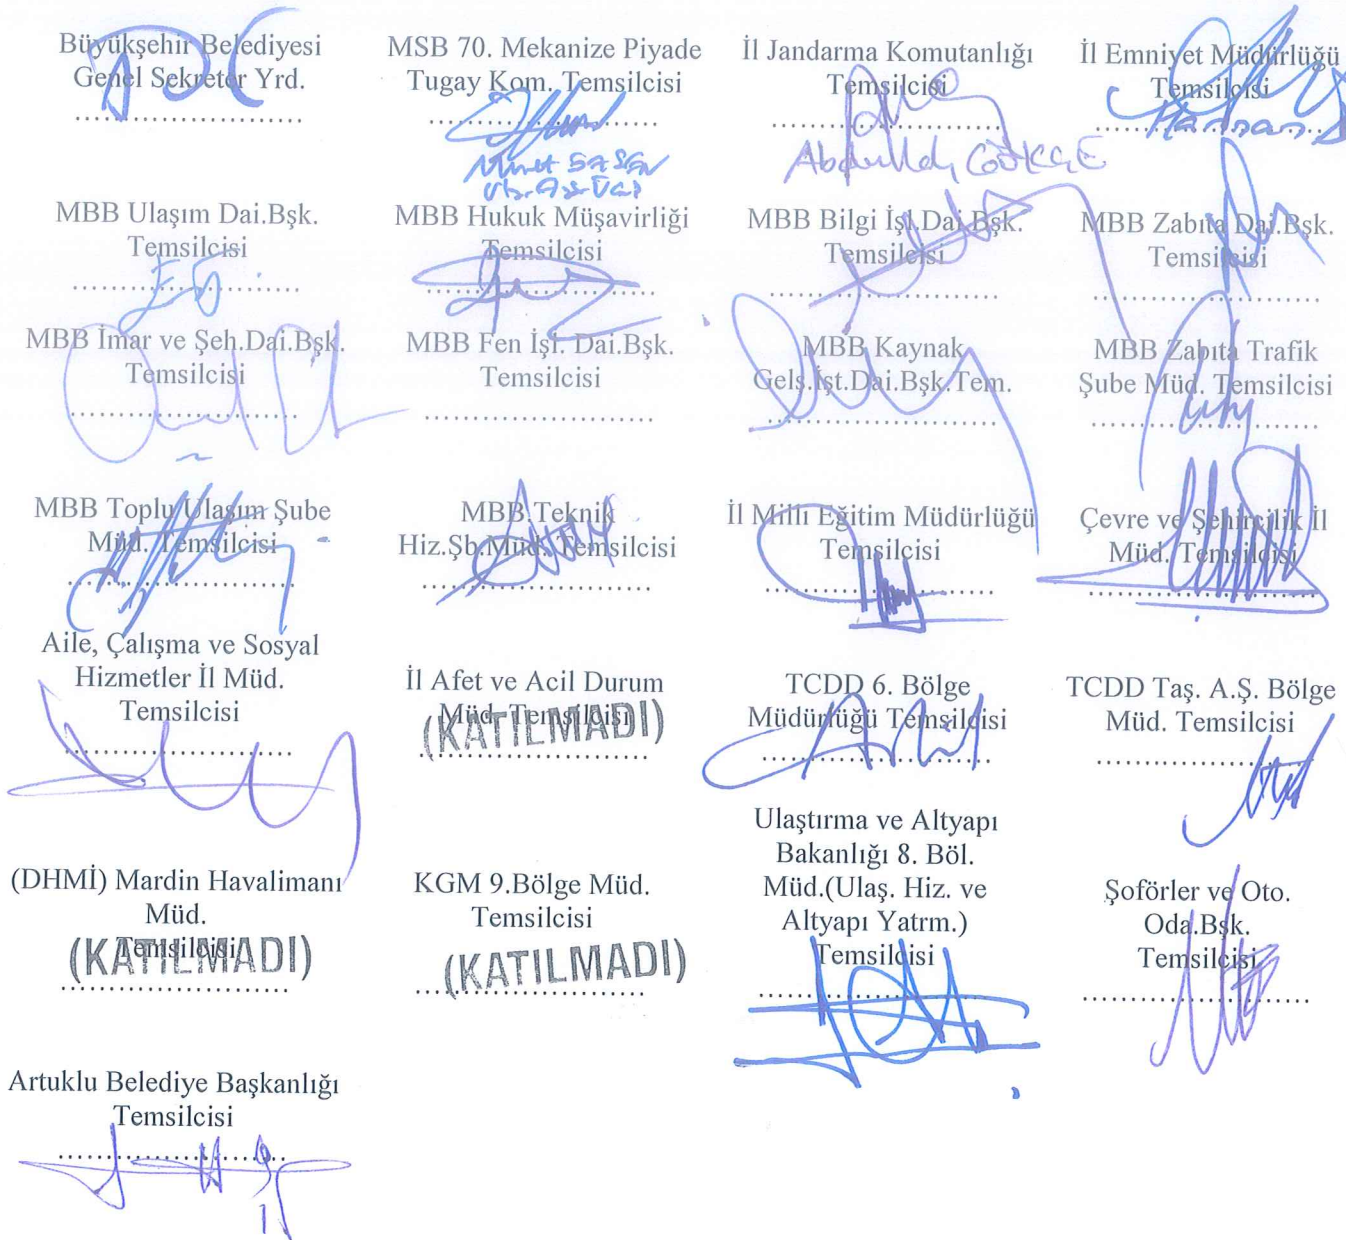 Büyükşehir Belediyesi
Genel Sekreter Yrd.
........................
MSB 70. Mekanize Piyade
Tugay Kom. Temsilcisi
........................
İl Jandarma Komutanlığı
Temsilcisi
........................
Abdullah GÖKÇE
İl Emniyet Müdürlüğü
Temsilcisi
........................
MBB Ulaşım Dai.Bşk.
Temsilcisi
........................
MBB Hukuk Müşavirliği
Temsilcisi
........................
MBB Bilgi İşl.Dai.Bşk.
Temsilcisi
........................
MBB Zabıta Dai.Bşk.
Temsilcisi
........................
MBB İmar ve Şeh.Dai.Bşk.
Temsilcisi
........................
MBB Fen İşl. Dai.Bşk.
Temsilcisi
........................
MBB Kaynak
Gelş.İşt.Dai.Bşk.Tem.
........................
MBB Zabıta Trafik
Şube Müd. Temsilcisi
........................
MBB Toplu Ulaşım Şube
Müd. Temsilcisi
........................
MBB Teknik
Hiz.Şb.Müd. Temsilcisi
........................
İl Milli Eğitim Müdürlüğü
Temsilcisi
........................
Çevre ve Şehircilik İl
Müd. Temsilcisi
........................
Aile, Çalışma ve Sosyal
Hizmetler İl Müd.
Temsilcisi
........................
İl Afet ve Acil Durum
Müd. Temsilcisi
(KATILMADI)
........................
TCDD 6. Bölge
Müdürlüğü Temsilcisi
........................
TCDD Taş. A.Ş. Bölge
Müd. Temsilcisi
........................
(DHMİ) Mardin Havalimanı
Müd.
Temsilcisi
(KATILMADI)
........................
KGM 9.Bölge Müd.
Temsilcisi
(KATILMADI)
........................
Ulaştırma ve Altyapı
Bakanlığı 8. Böl.
Müd.(Ulaş. Hiz. ve
Altyapı Yatrm.)
Temsilcisi
........................
Şoförler ve Oto.
Oda.Bşk.
Temsilcisi
........................
Artuklu Belediye Başkanlığı
Temsilcisi
........................